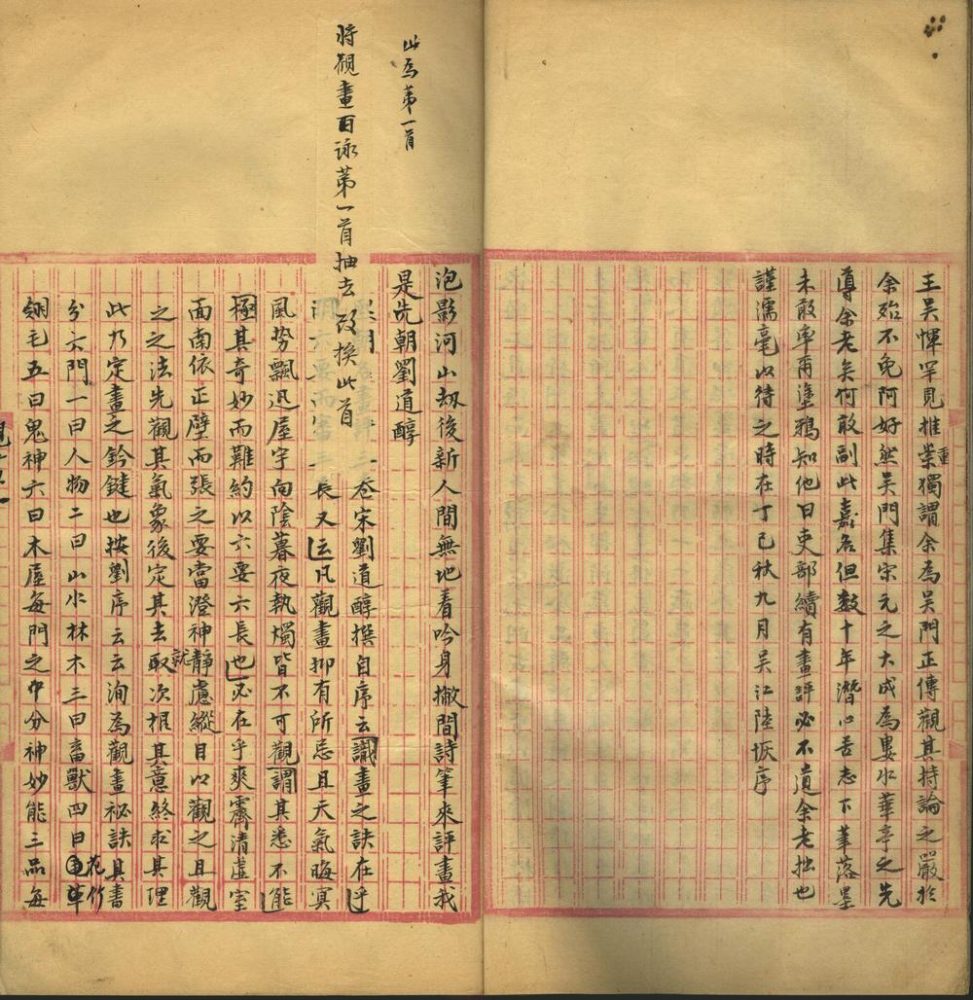 王吴惲罕見推崇獨謂余為吴門正傳觀其持論之嚴於
重
余殆不免阿好然吴門集宋元之大成為婁水華亭之先
導余老矣何敢副此嘉名但數十年潛心苦志下筆落墨
未敢率爾塗鴉知他日吏部續有畫評必不道余老拙也
謹濡毫以待之時在丁巳秋九月吴江陸恢序
此為第一首
將觀畫百詠第一首抽去改換此首
泡影河山劫後新人間無地着吟身撇閒詩筆來評畫我
是先朝劉道醇
三卷宋劉道醇撰自序云識畫之訣在乎
長又云凡觀畫抑有所忌且天氣晦冥
風勢飄迅屋宇向陰暮夜執燭皆不可觀謂其悉不能
極其奇妙而難約以六要六長也必在乎爽霽清虛室
面南依正壁而張之要當澄神靜慮縱目以觀之且觀
就
之之法先觀其氣象後定其去取次根其意終求其理
此乃定畫之鈐鍵也按劉序云云洵為觀畫祕訣具書
分六門一曰人物二曰山水林木三曰畜獸四曰草
花竹
翎毛五曰鬼神六曰木屋每門之中分神妙能三品每